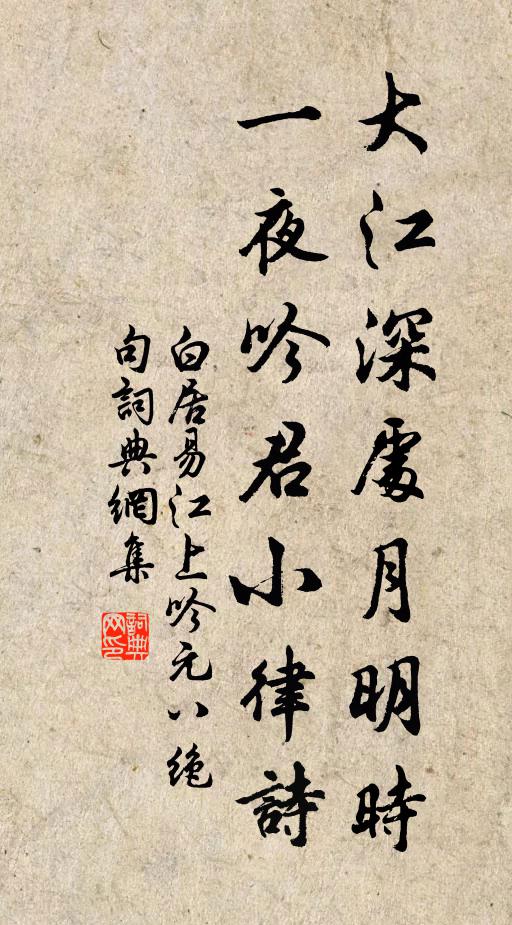 大江深處月明時
一夜吟君小律詩
白居易江上吟元八絶
句詞典網集
詞典网印